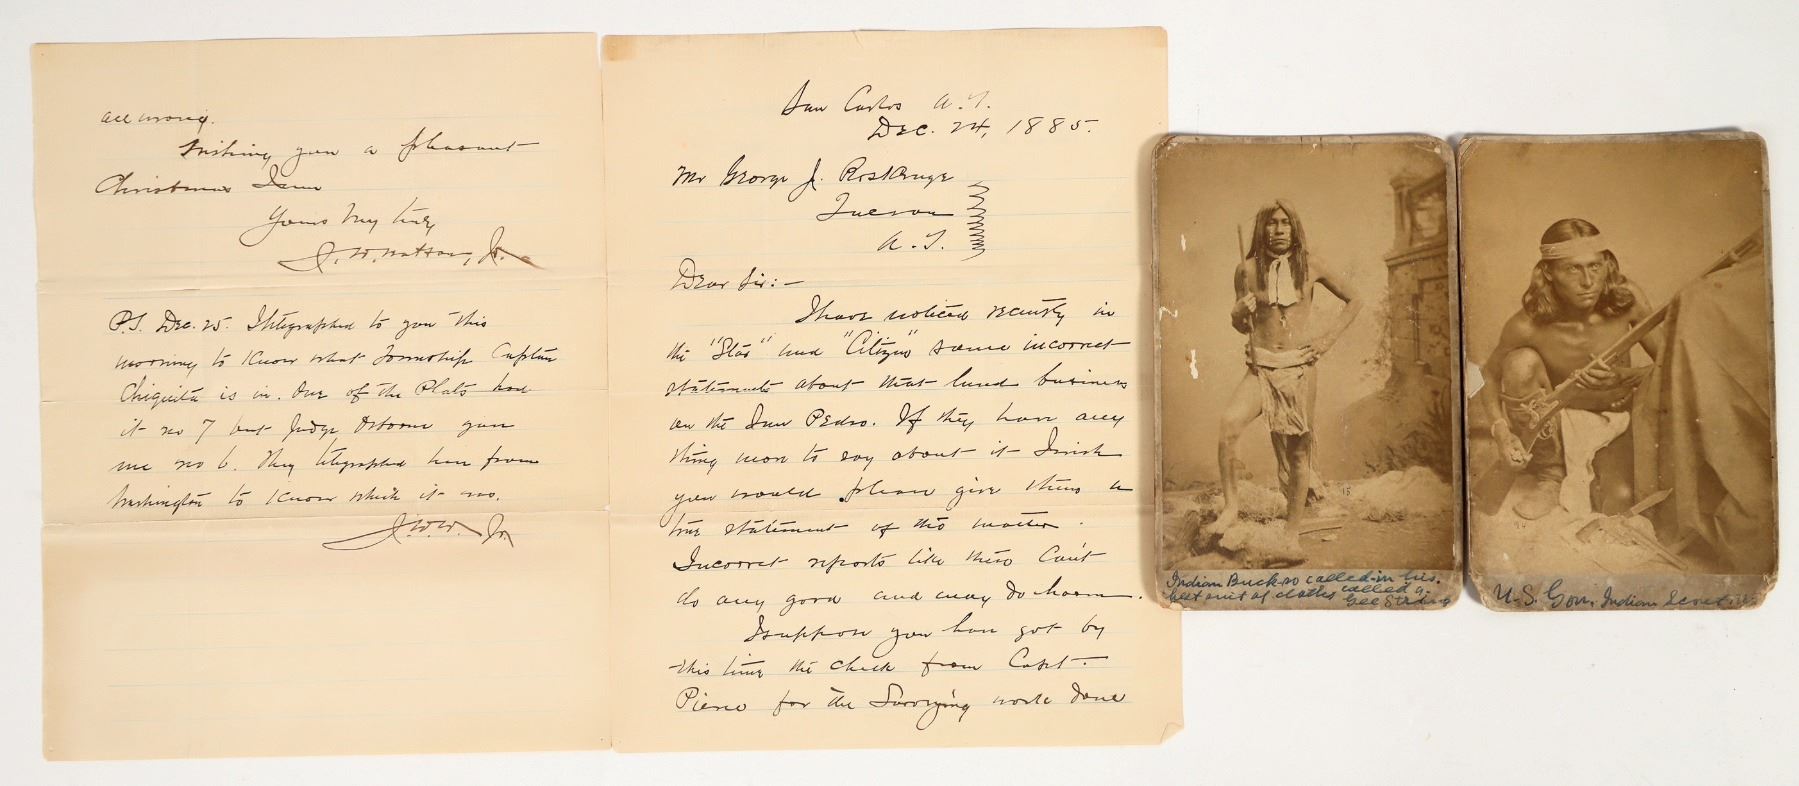 San Carlos A.T.
Dec. 24, 1885.
Mr George J. Roskruge
Tucson
A.T.
Dear Sir:-
I have noticed recently in
the "Star" and "Citizen" some incorrect
statements about that land business
on the San Pedro. If they have any
thing more to say about it I wish
you would please give them a
true statement of the matter.
Incorrect reports like these Can't
do any good and may do harm.
I suppose you have got by
this time the check from Capt.
Pierce for the Surveying work done
all wrong.
Wishing you a pleasant
Christmas I am
Yours very truly
J. W. Watson, Jr.
P.S. Dec. 25. I telegraphed to you this
morning to know what Township Captain
Chiquito is in. One of the Plats had
it no 7 but Judge Osborne gave
me no 6. They telegraphed here from
Washington to know which it was.
J.W.W. Jr.
15
Indian Buck so called in his
belt suit of cloths called a
Gee String
14
U.S. Gov. Indian Scout